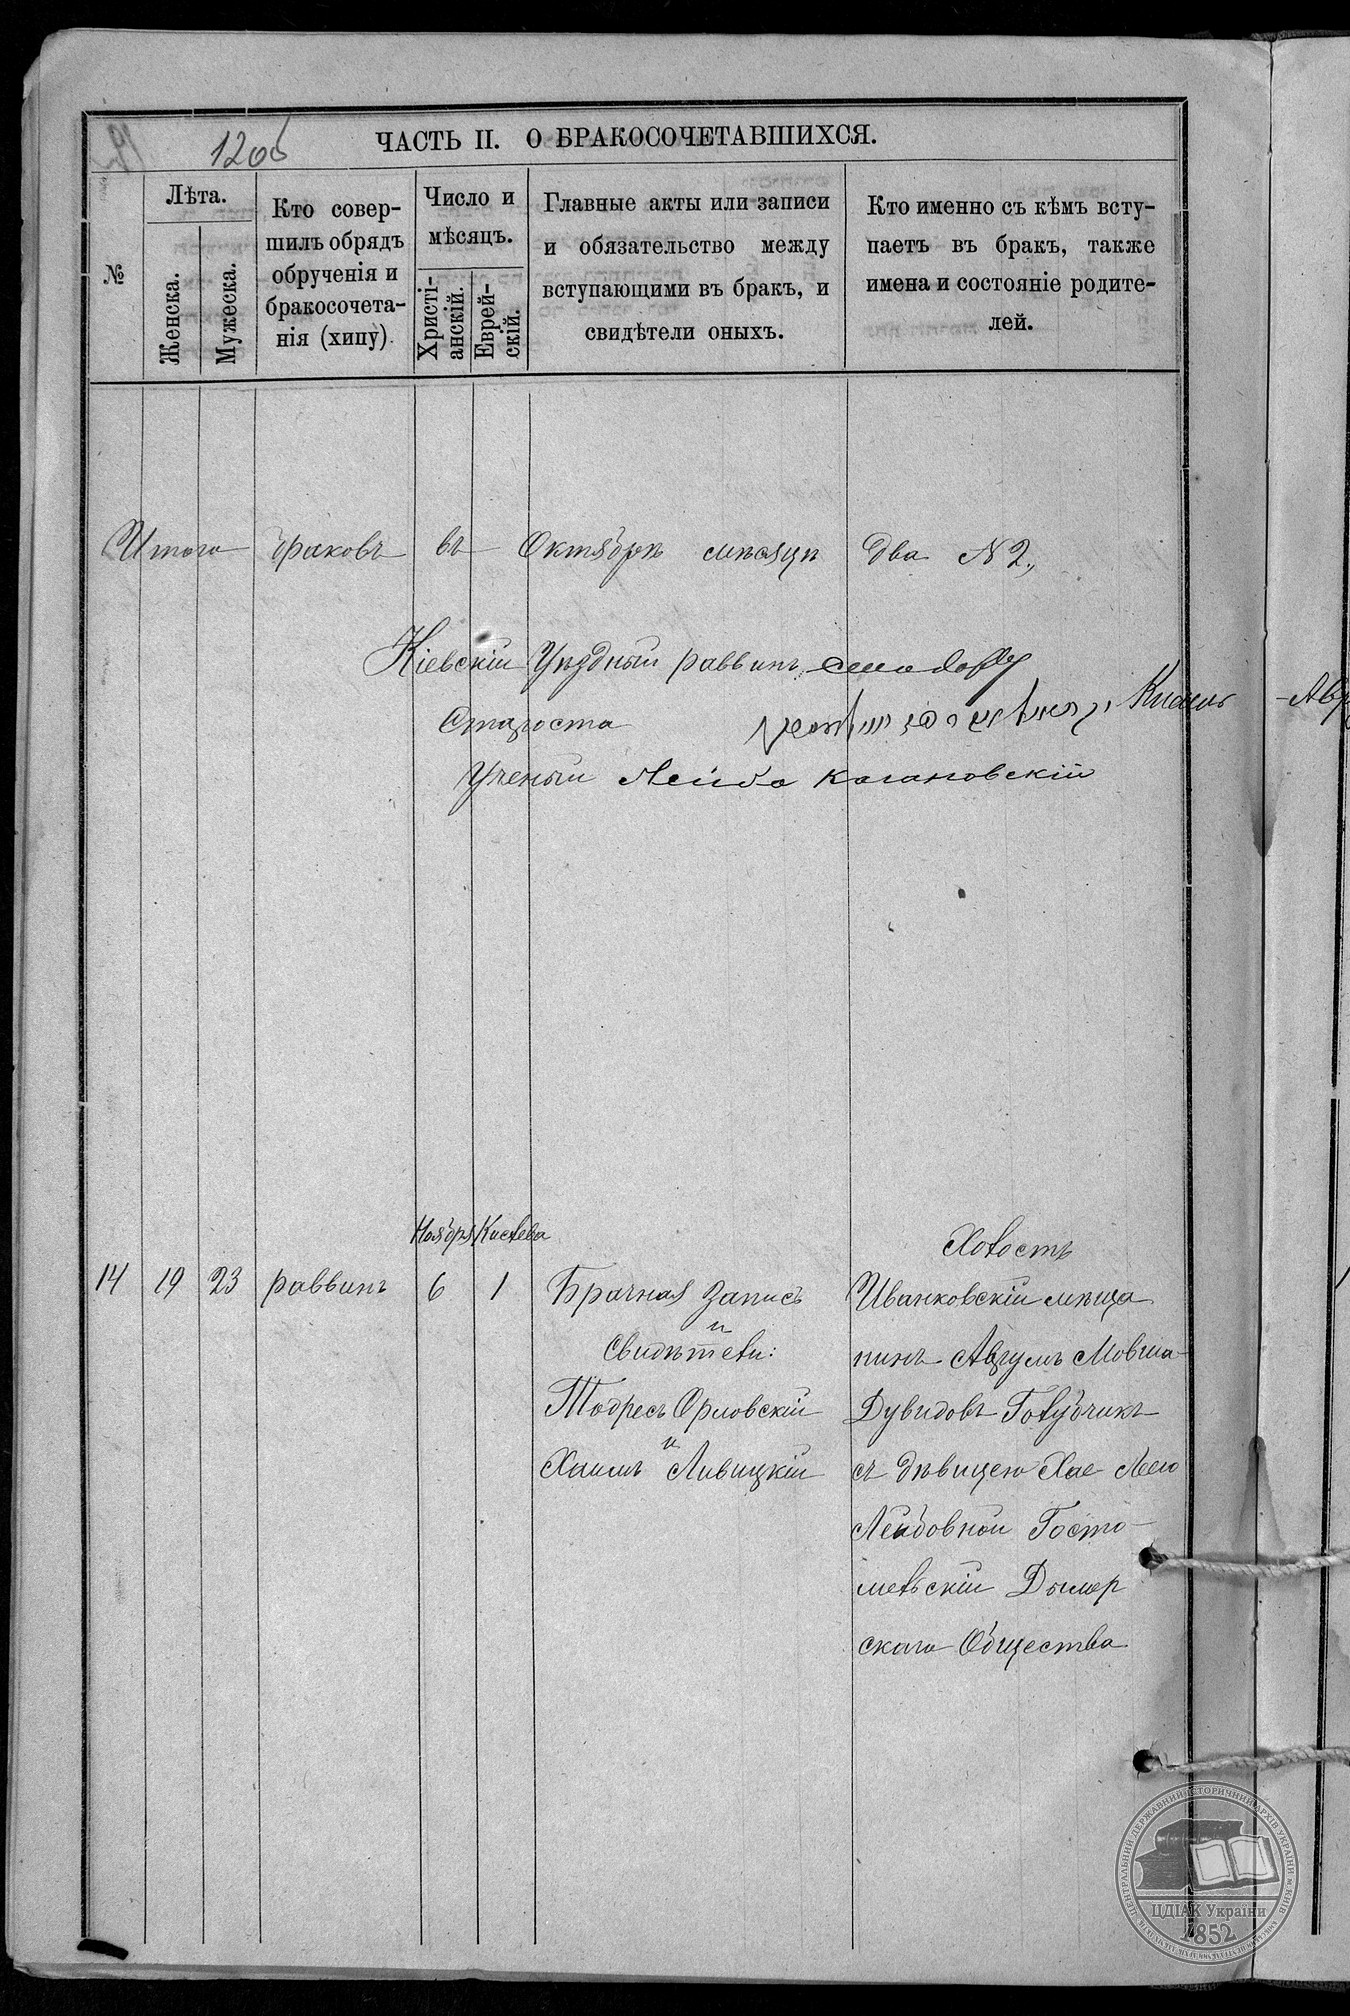 1206
ЧАСТЬ II. О БРАКОСОЧЕТАВШИХСЯ.
№
Лѣта.
Женска.
Мужеска.
Кто совер-
шилъ обрядъ
обрученія и
бракосочета-
нія (хипу)
Число и
мѣсяцъ.
Христі-
анскій.
Еврей-
скій.
Главные акты или записи
и обязательство между
вступающими въ бракъ, и
свидѣтели оныхъ.
Кто именно съ кѣмъ всту-
паетъ въ бракъ, также
имена и состояніе родите-
лей.
Итого браковъ въ Октябрѣ мѣсяцѣ два N 2.,
Кіевскій Уѣздный раввинъ
Староста
Ученый Лейба Кагановскій
Ноября Кислева
Холостъ
14 19 23 раввинъ 6 1 Брачная Запись
и
Свидѣтели:
Тодресъ Орловскій
и
Хаимъ Ливицкій
Иванковскій мѣща
нинъ Аврумъ Мовша
Дувидовъ Голубчикъ
съ дѣвицею Хае Леею
Лейбовной Госто-
мельскій Дымер
скаго Общества
ЦЕНТРАЛЬНИЙ ДЕРЖАВНИЙ ІСТОРИЧНИЙ АРХІВ УКРАЇНИ м. КИЇВ
ЦДІАК України
1852